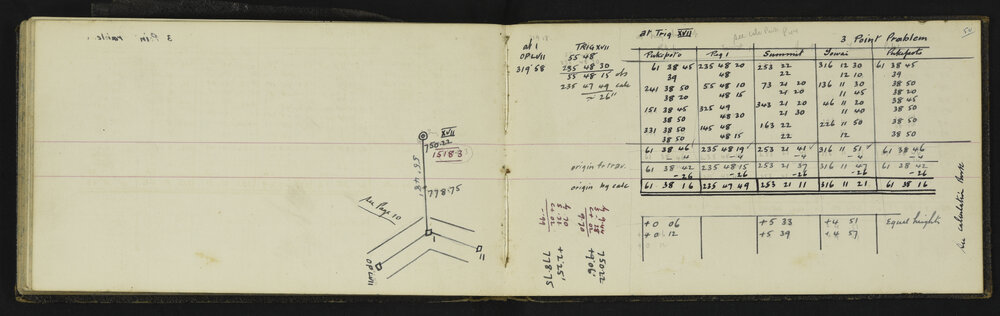 3 Pin
XVII
750.22
15183
55° 48'
778.75
See Page 10
I
II
OPLVII
at I TRIG XVII
OPLVII 55 48
319 58 235 48 30
55 48 15 obs
235 47 49 calc
≈ 26"
at Trig XVII
3 Point Problem
54
Pukepoto Peg 1 Summit Towai Pukepoto
61 38 45 235 48 20 253 22 316 12 30 61 38 45
39 48 22 12 10 39
241 38 50 55 48 10 73 21 20 136 11 30 38 50
38 20 48 15 21 20 11 45 38 20
151 38 45 325 49 343 21 20 46 11 20 38 45
38 50 48 20 21 30 11 40 38 50
331 38 50 145 48 163 22 226 11 50 38 50
38 50 48 15 22 12 38 50
61 38 46 235 48 19 253 21 41 316 11 51 61 38 46
-4 -4 -4 -4 -4
origin to trav. 61 38 42 235 48 15 253 21 37 316 11 47 61 38 42
-26 -26 -26 -26
origin by calc 61 38 16 235 47 49 253 21 11 316 11 21 61 38 16
+0 06 +5 33 +4 51 Equal heights
+0 12 +5 39 +4 57
See calculation books
750.22
+9.06'
+2.25'
778.75